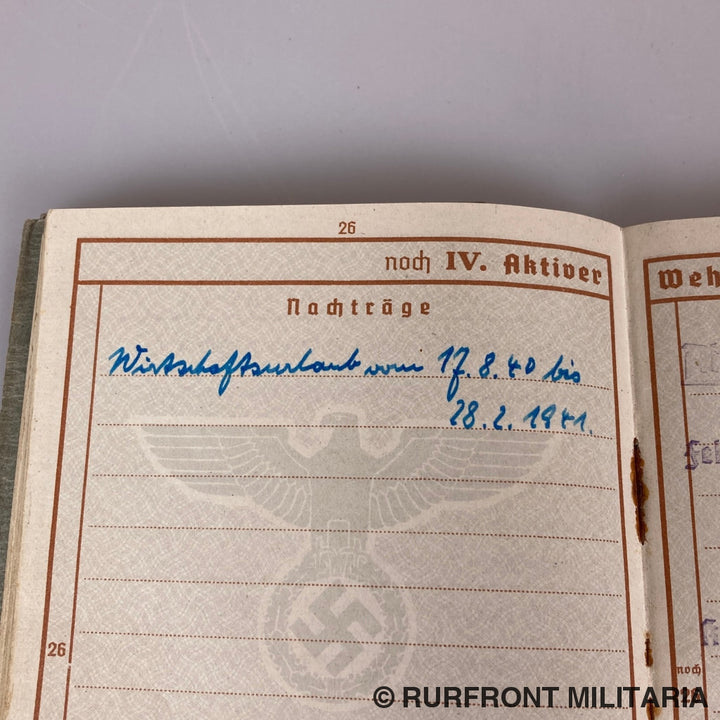 26
noch IV. Aktiver
Nachträge
Wirtschaftsurlaub vom 17.8.40 bis
28.2.1941.
26
Weh
noch
© RURFRONT MILITARIA